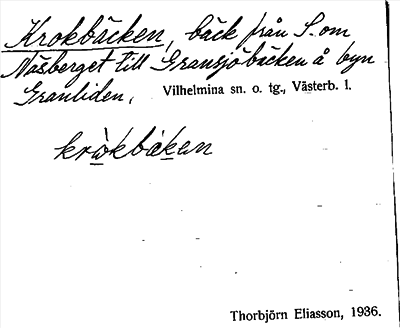 Krokbäcken, bäck från S. om
Näsberget till Gransjöbäcken å byn
Granliden, Vilhelmina sn. o. tg., Västerb. l.
kròkbäkan
Thorbjörn Eliasson, 1936.